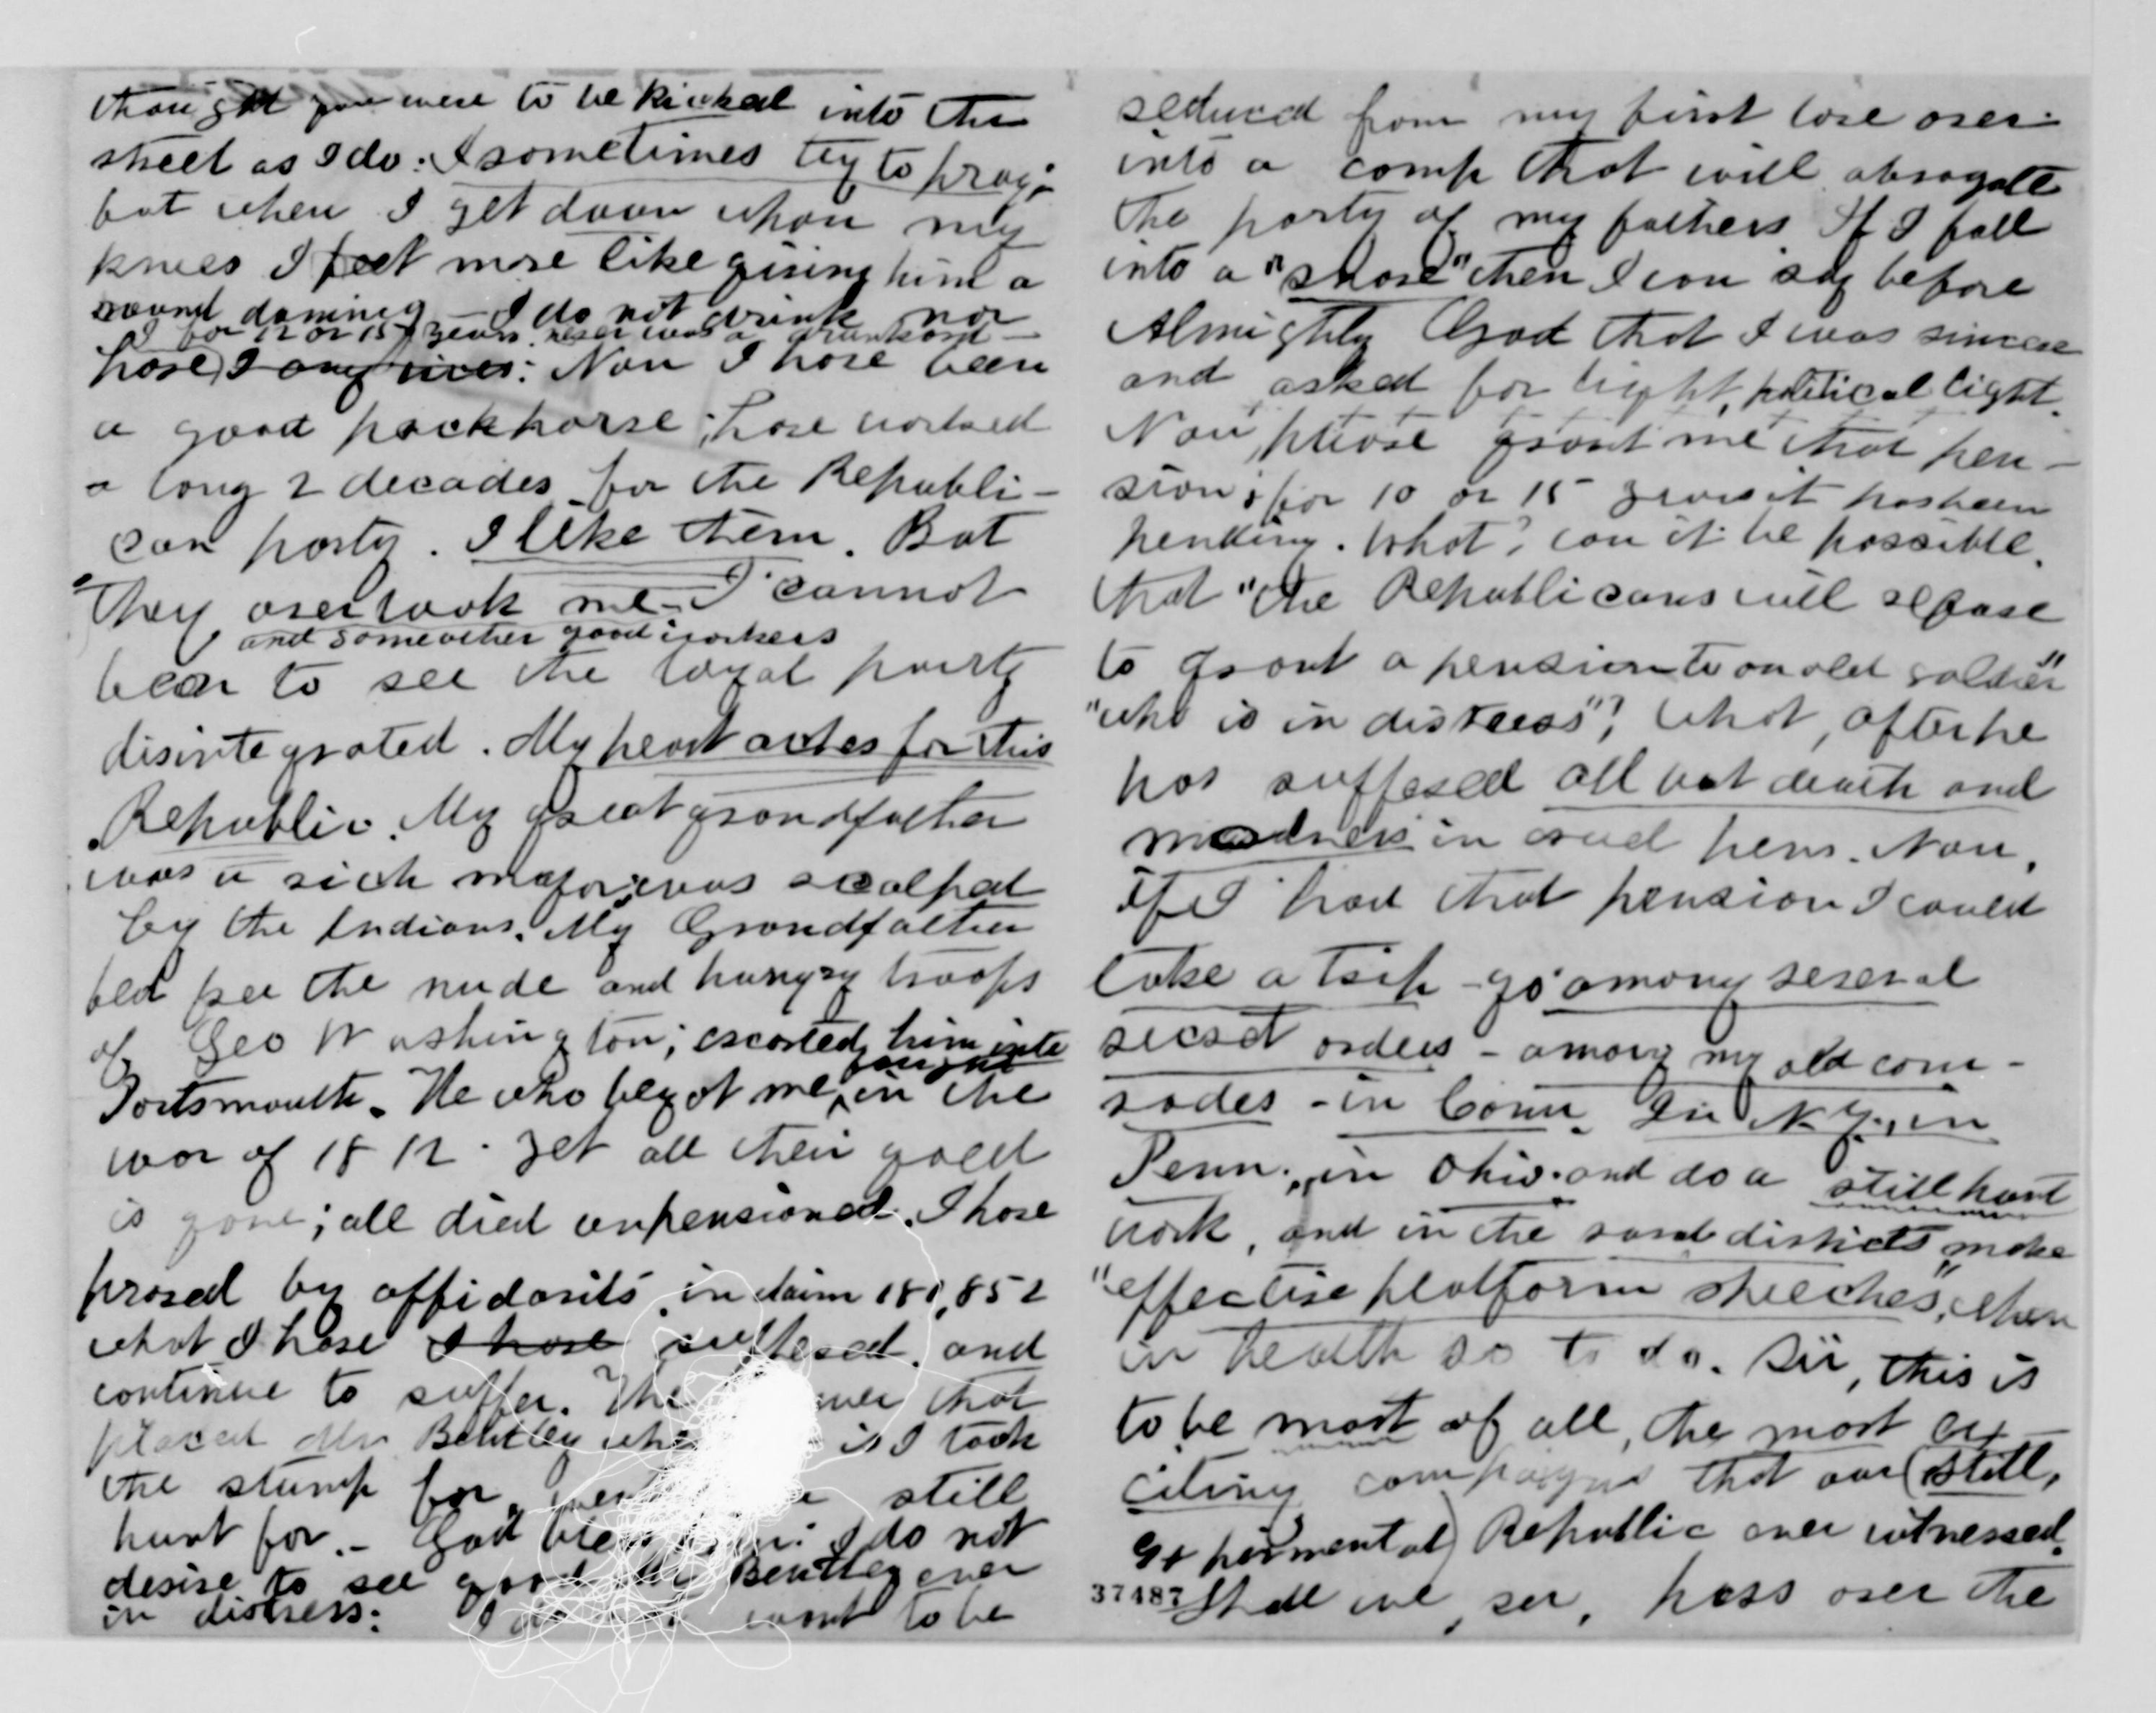 thought you were to be kicked into the
street as I do: I sometimes try to pray;
but when I get down upon my
knees I feel more like giving him a
round daming — I do not drink nor
for 12 or 15 years. never was a drunkard —
have I any vices: Now I have been
a good packhorse; have worked
a long 2 decades for the Republi-
can party. I like them. But
they overlook me. I cannot
and some other good workers
bear to see the loyal party
disintegrated. My heart aches for this
Republic. My great grandfather
was a rich major; was scalped
by the Indians. My Grandfather
fed free the nude and hungry troops
of Geo Washington; escorted him into
fought
Portsmouth. He who begot me, in the
war of 1812. Yet all their gold
is gone; all died unpensioned. I have
proved by affidavits in claim 181,852
what I have I have suffered, and
continue to suffer. The that
placed Mr Bentley is I took
the stump for still
hunt for. — God I do not
desire to see good Bentley ever
in distress: I want to be
seduced from my first love over
into a camp that will abrogate
the party of my fathers. If I fall
into a "snare" then I can say before
Almighty God that I was sincere
and asked for light, political light.
Now, please grant me that pen-
sion; for 10 or 15 years it has been
pending. What? can it be possible,
that "the Republicans will refuse
to grant a pension to an old soldier"
"who is in distress"? What, after he
has suffered all but death and
madness in cruel pens. Now,
if I had that pension I could
take a trip — go among several
secret orders — among my old com-
rades — in Conn. In N.Y., in
Penn., in Ohio. and do a still hunt
work, and in the rural districts make
"effective platform speeches", when
in health so to do. Sir, this is
to be most of all, the most ex-
citing campaign that our (still,
experimental) Republic ever witnessed.
37487 Shall we, sir, pass over the